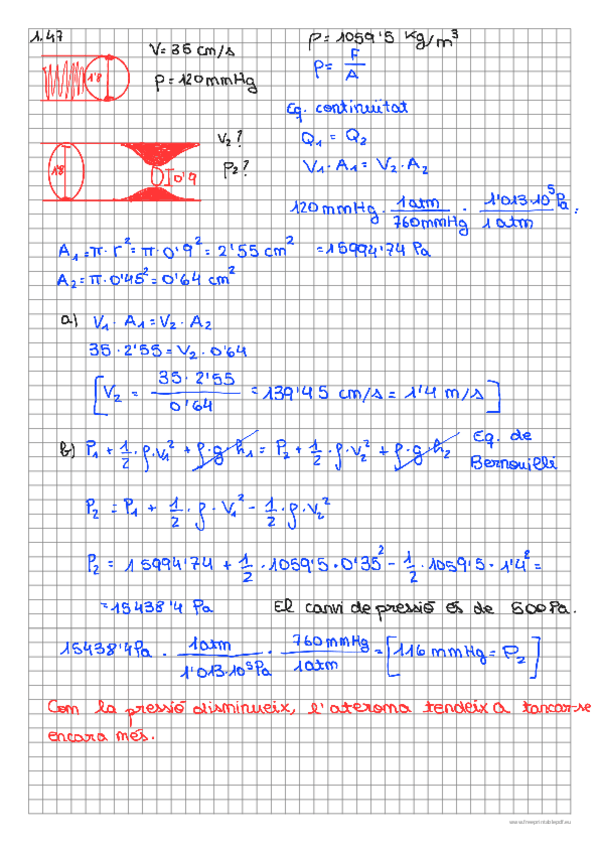 1.47
V = 35 cm/s
ρ = 1059'5 Kg/m³
P = 120 mmHg
P = F/A
1'8
Eq. continuïtat
Q₁ = Q₂
V₂?
P₂?
V₁ · A₁ = V₂ · A₂
1'8
0'9
120 mmHg · 1 atm/760 mmHg · 1'013·10⁵ Pa/1 atm =
A₁ = π · r² = π · 0'9² = 2'55 cm²
= 15994'74 Pa
A₂ = π · 0'45² = 0'64 cm²
a) V₁ · A₁ = V₂ · A₂
35 · 2'55 = V₂ · 0'64
[V₂ = 35 · 2'55/0'64 = 139'45 cm/s = 1'4 m/s]
b) P₁ + 1/2 · ρ · V₁² + ρ · g · h₁ = P₂ + 1/2 · ρ · V₂² + ρ · g · h₂
Eq. de
Bernouilli
P₂ = P₁ + 1/2 · ρ · V₁² - 1/2 · ρ · V₂²
P₂ = 15994'74 + 1/2 · 1059'5 · 0'35² - 1/2 · 1059'5 · 1'4² =
= 15438'4 Pa
El canvi de pressió és de 500 Pa.
15438'4 Pa · 1 atm/1'013·10⁵ Pa · 760 mmHg/1 atm = [116 mmHg = P₂]
Com la pressió disminueix, l'ateroma tendeix a tancar-se
encara més.